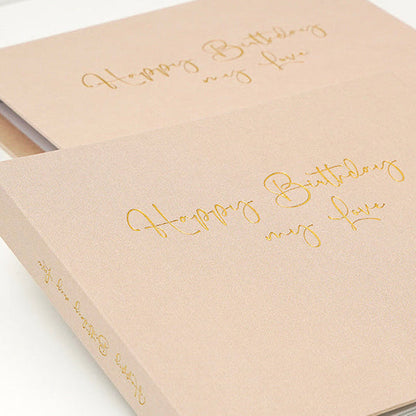 Happy Birthday
my Love
Happy Birthday
my Love
Happy Birthday my Love